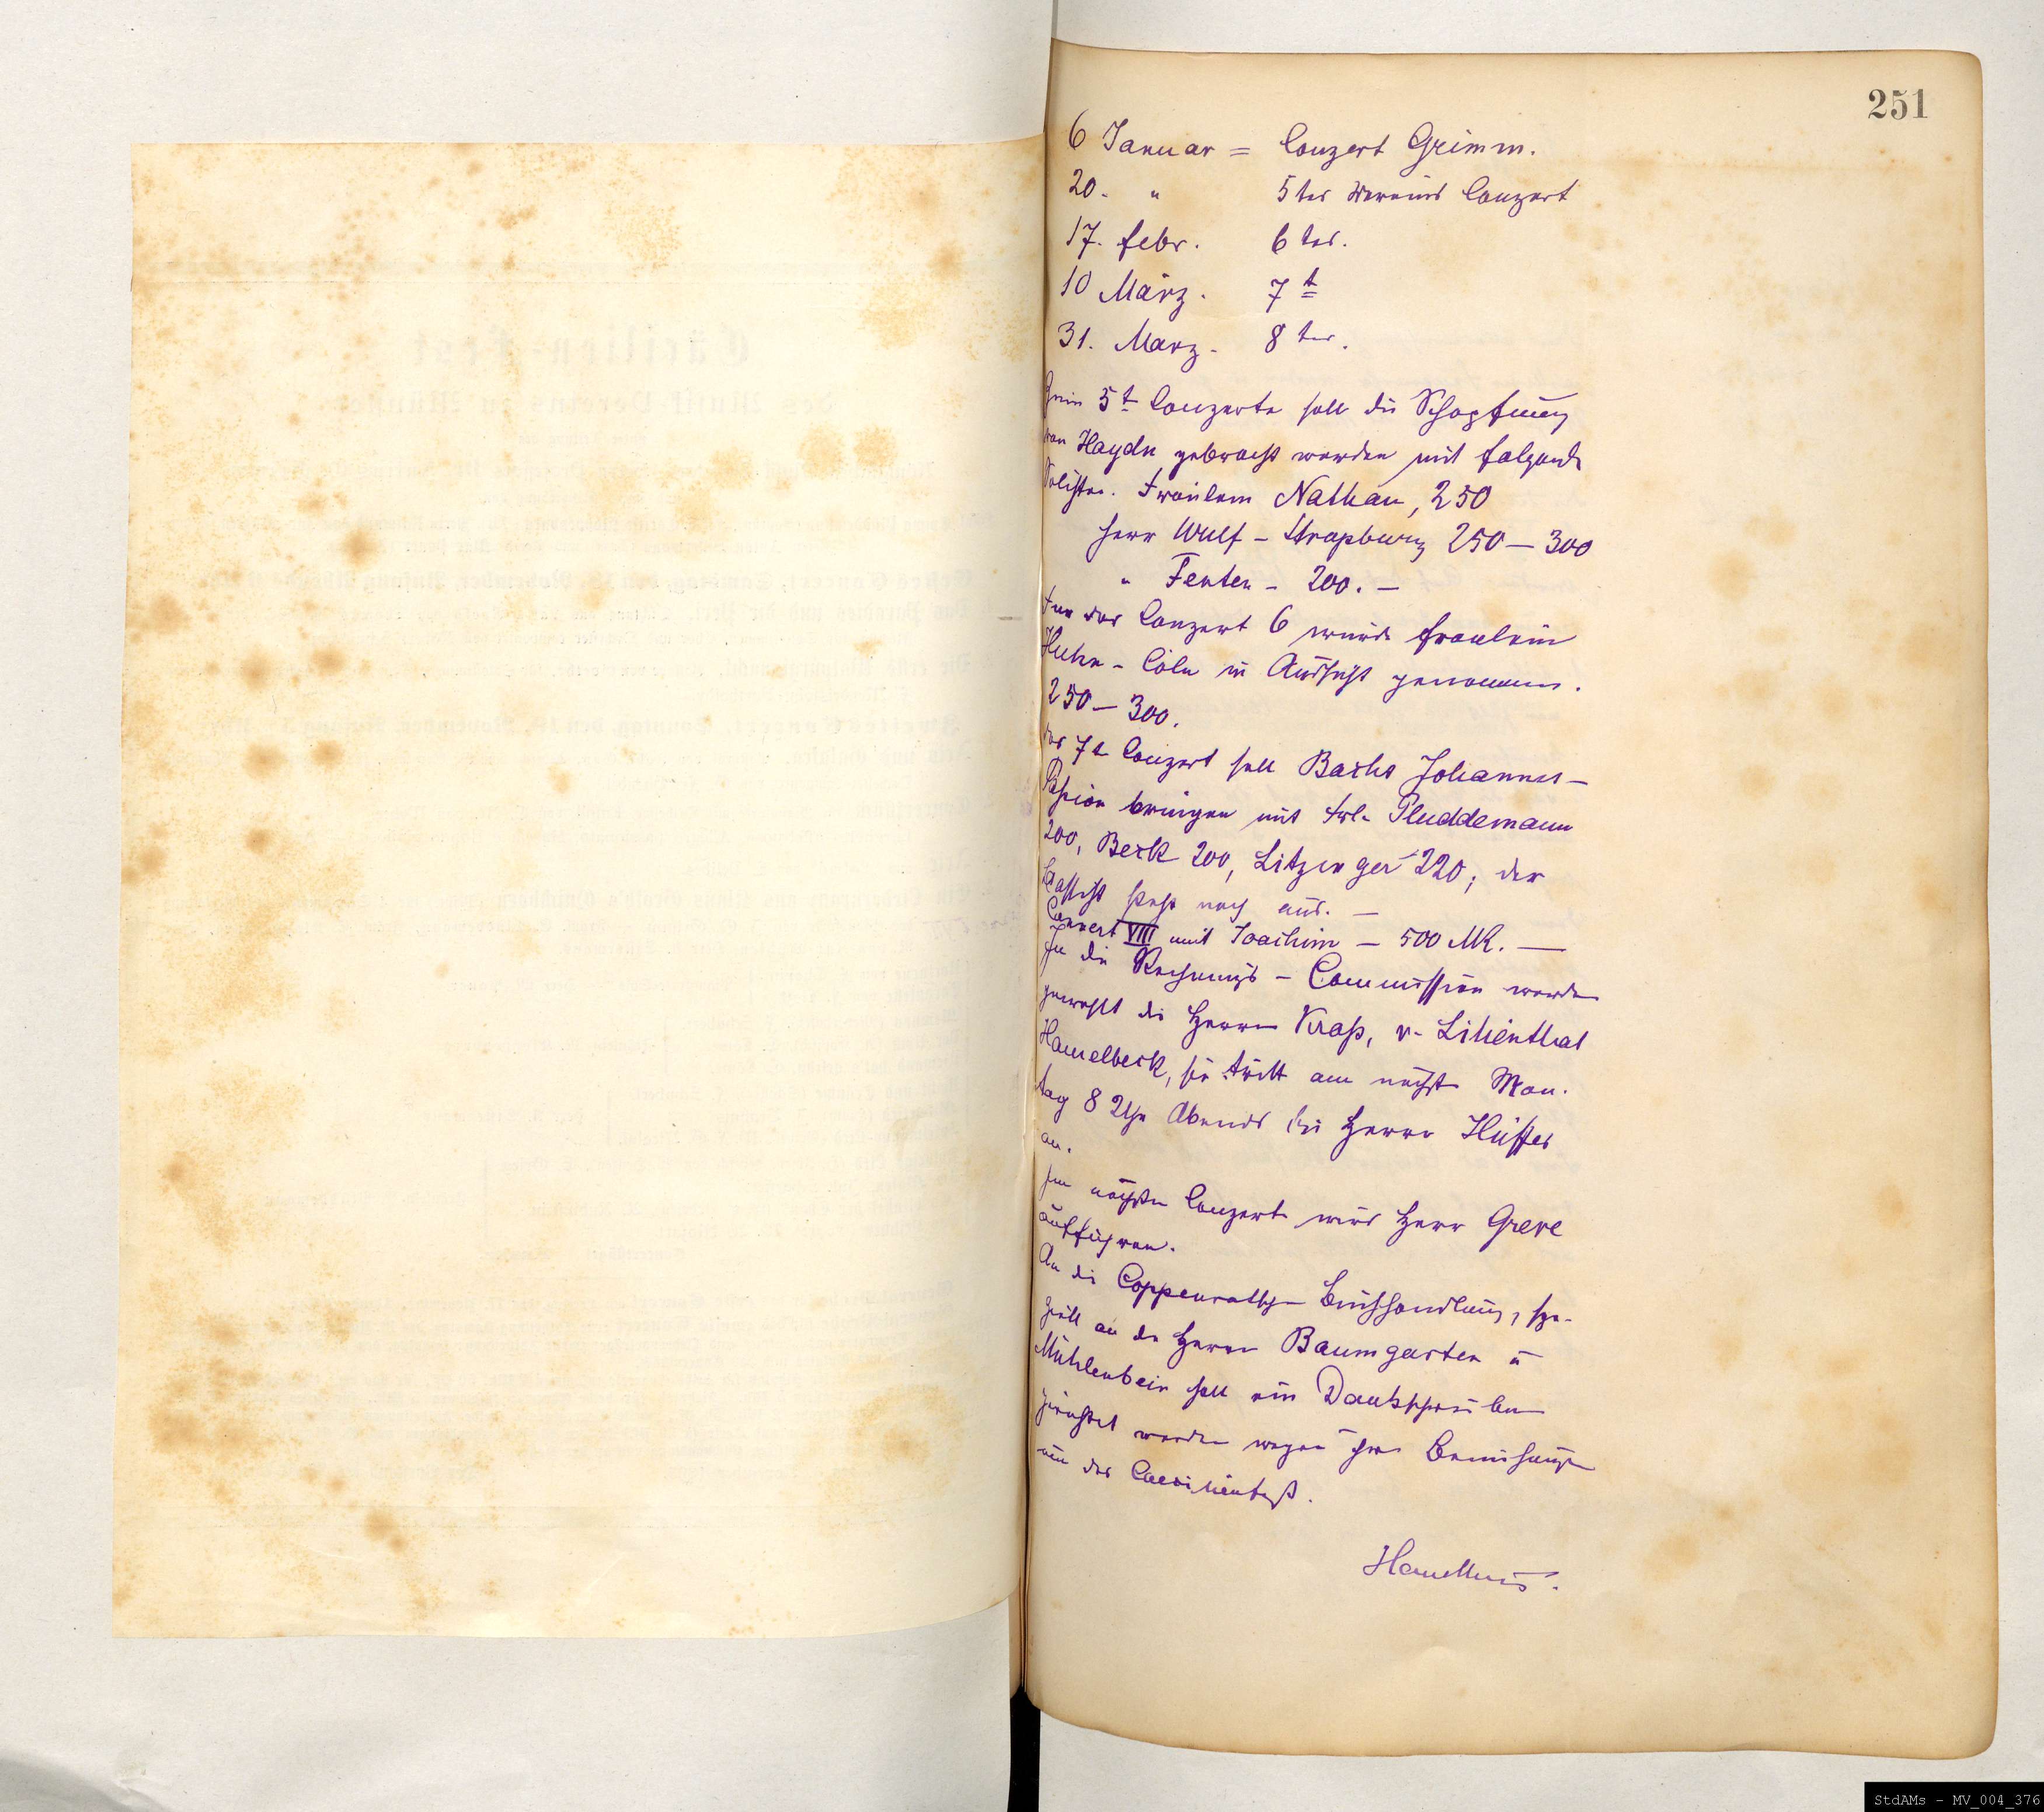 251
6 Januar = Conzert Grimm.
20. " 5tes Vereins Conzert
17. Febr. 6tes.
10 März. 7t
31. März. 8tes.
Zum 5t Conzerte soll die Schöpfung
von Haydn gebracht werden mit folgende
Solisten. Fräulein Nathan, 250
Herr Wulf - Straßburg 250 - 300
" Fenten - 200. -
Fur das Conzert 6 wurde Fräulein
Huhn - Cöln in Aussicht genommen.
250 - 300.
das 7te Conzert soll Bachs Johannes-
Passion bringen mit Frl. Pluddemann
200, Beck 200, Litzinger 220; der
Bassist steht noch aus. -
Concert VIII mit Joachim - 500 MK. -
In die Rechnungs - Commission werden
gewählt die Herren Kraß, v. Lilienthal
Hamelbeck, sie tritt am nächst Mon-
tag 8 Uhr Abends bei Herrn Hüffer
an.
Im nächsten Conzerte wird Herr Greve
aufführen.
An die Coppenrathsche Buchhandlung, spe-
ziell an die Herren Baumgarten u
Mühlenbein soll ein Dankschreiben
gerichtet werden wegen ihrer Bemühungen
um das Caecilienfest.
StdAMs - MV_004_376